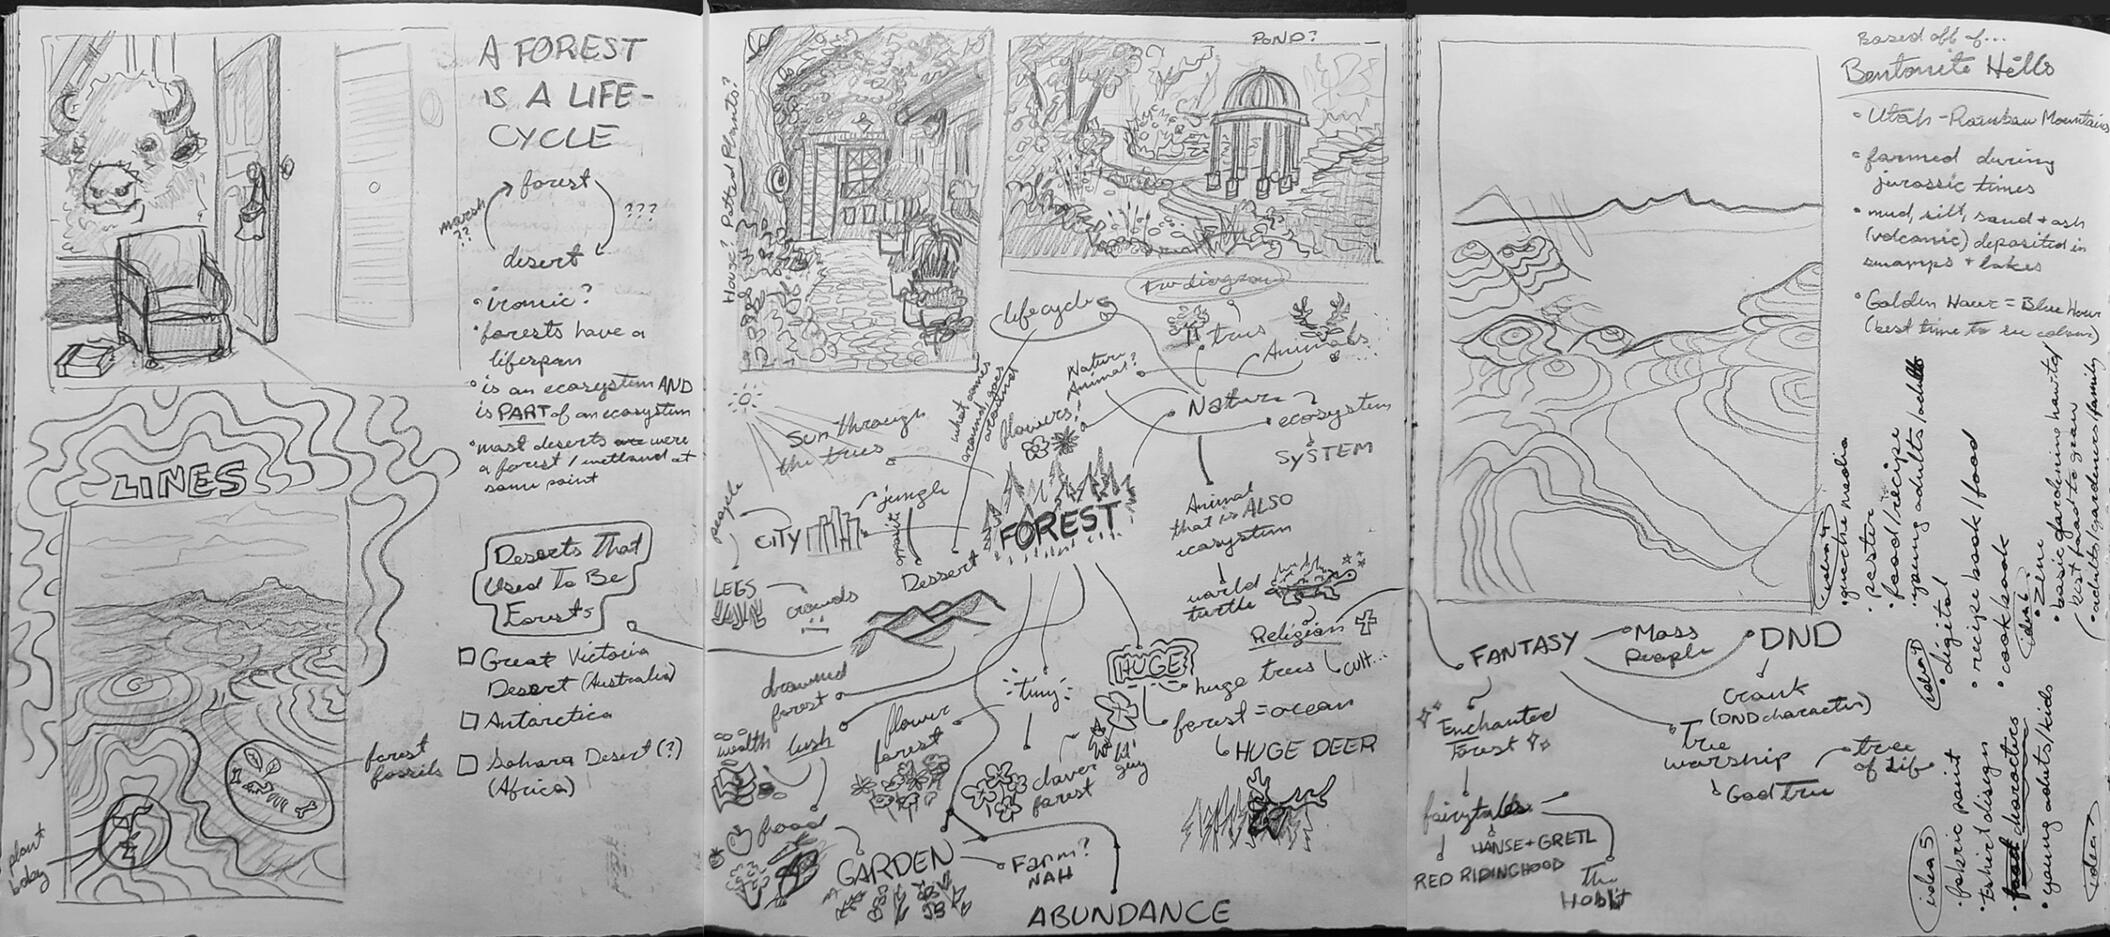 A FOREST
IS A LIFE-
CYCLE
forest
marsh
??
???
desert
• ironic?
• forests have a
lifespan
• is an ecosystem AND
is PART of an ecosystem
• most deserts are were
a forest / wetland at
some point
LINES
Deserts That
Used To Be
Forests
Great Victoria
Desert (Australia)
Antarctica
Sahara Desert (?)
(Africa)
forest
fossils
plant
baby
House? Potted Plants?
POND?
lifecycle
trees
Animals
Nature
Animal?
what comes
around, goes
around
flowers
Nature
ecosystem
SYSTEM
Sun through
the trees
people
CITY
jungle
opposite
Dessert
FOREST
Animal
that is ALSO
ecosystem
world
turtle
Religion
cult...
LEGS
crowds
drowned
forest
HUGE
huge trees
forest = ocean
HUGE DEER
tiny
flower
forest
clover
forest
lil'
guy
wealth
lush
food
GARDEN
Farm?
NAH
ABUNDANCE
Based off of...
Bentonite Hills
• Utah - Rainbow Mountains
• formed during
jurassic times
• mud, silt, sand + ash
(volcanic) deposited in
swamps + lakes
• Golden Hour = Blue Hour
(best time to see colours)
FANTASY
Moss
People
DND
Cronk
(DND character)
Enchanted
Forest
Tree
worship
tree
of life
God Tree
fairytales
HANSE + GRETL
RED RIDINGHOOD
The
Hobbit
idea 4
• gouache media
• poster
• food/recipe
• young adults/adults
• digital
• recipe book/food
• cookbook
• zene
• basic gardening howto/
best food to grow
• adults/gardeners/family
idea 5
• fabric paint
• tshirt design
• characters
• young adults/kids
idea 7